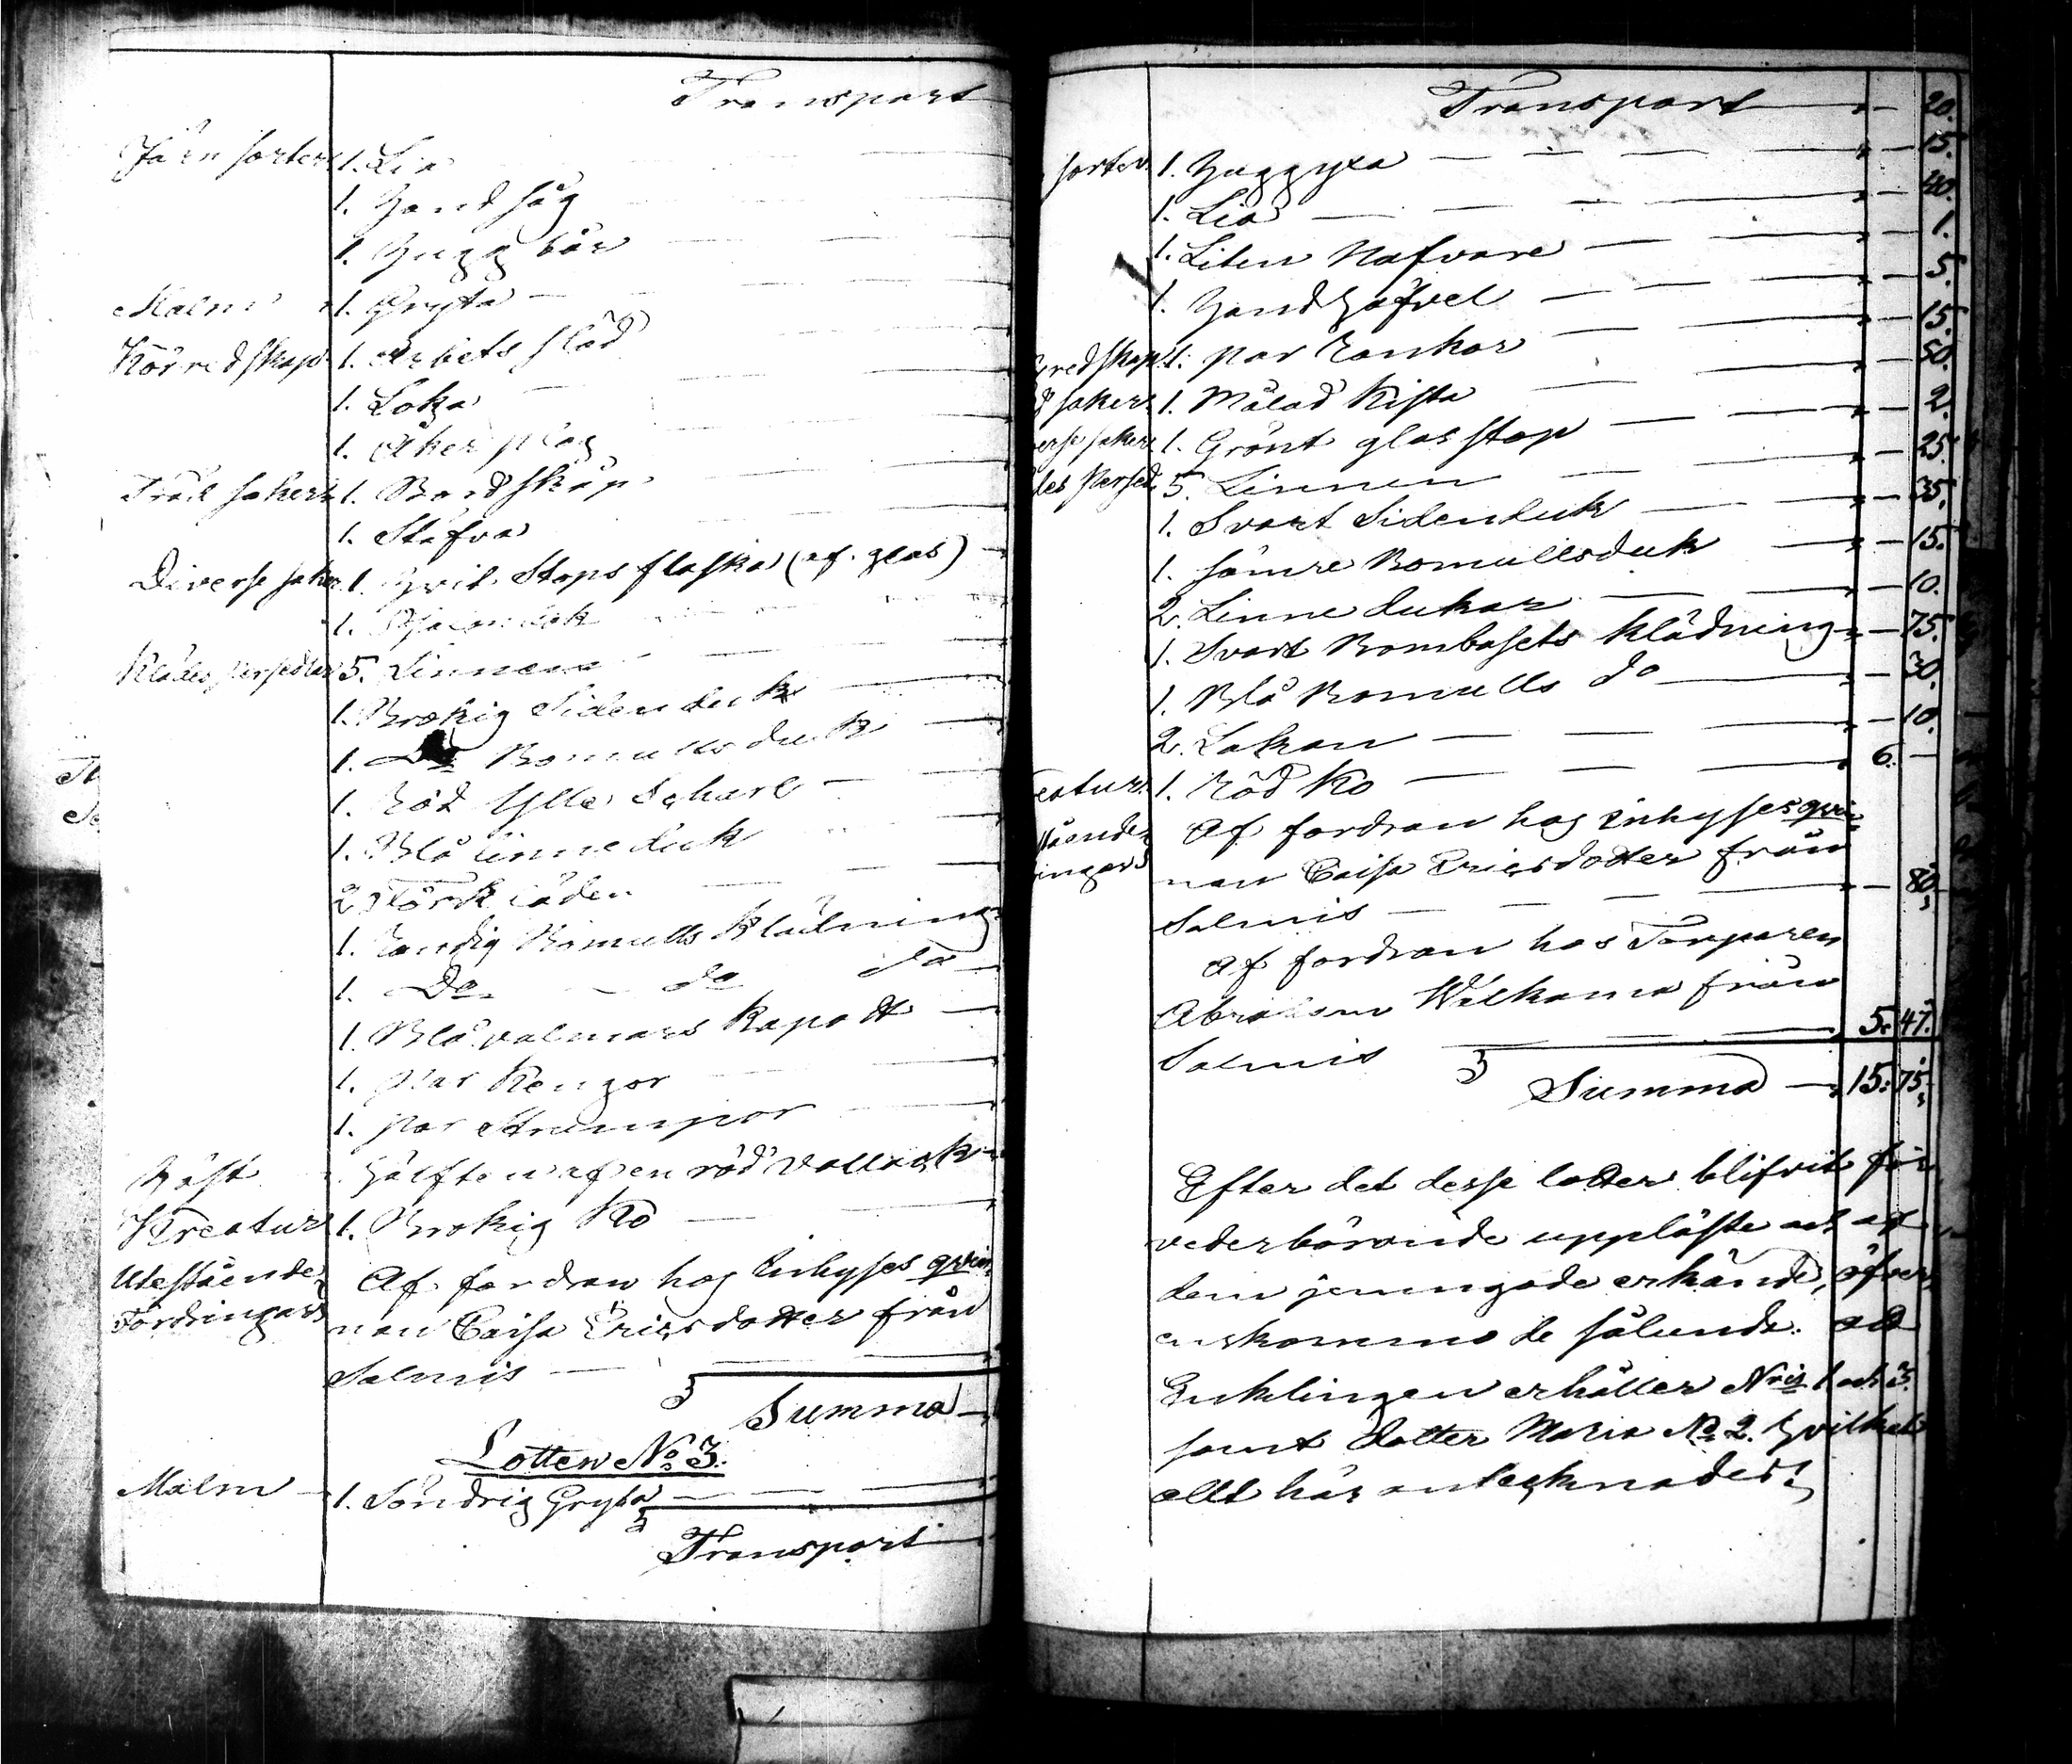 Transport
Järn sorter 1. Lia
1. Handsåg
1. Huggbår
Malm 1. Gryta
Körredskap 1. Arbets släd
1. Loka
1. Åker plog
Träd saker 1. Bordskåp
1. Stäfva
Diverse saker 1. Hvit Stops flaska (af. glas)
1.
Klädespersedlar 5. Linnen
1. Brokig Sidenduk
1. Do Bomullsduk
1. Röd Ylle Schavl
1. Blå linneduk
2 Förkläden
1. Randig Bomulls Klädning
1. Do do do
1. Blå valmars Kapott
1. Par Kengor
1. par Strumpor
Häst Hälften af en röd Vallack
Kreatur 1. Brokig Ko
Utestående Af fordran hos Inhyses qvin-
Fordringar nan Caisa Ericsdotter från
Salmis
Summa
Lotten No 3.
Malm 1. Söndrig Gryta
Transport
Transport — 20.
sorter. 1. Huggyxa — 15.
1. Lia — 40.
1. Liten Nafvare — 1.
1. Handhöfvel — 5.
redskap 1. par Rankor — 15.
saker 1. Målad Kista — 50.
erse saker 1. Grönt glas stop — 2.
des Persed. 5. Linnen — 25.
1. Svart Sidenduk — 35.
1. sämre Bomullsduk — 15.
2. Linne dukar — 10.
1. Svart Bombasets Klädning — 75.
1. Blå Bomulls do — 30.
2. Lakan — 10.
eatur. 1. Röd Ko 6. —
stående Af fordran hos inhyses qvin-
ingar nan Caisa Ericsdotter från
Salmis — 80.
Af fordran hos Torparen
Abraham Wilkama från
Salmis 5. 47.
Summa 15. 75.
Efter det desse lotter blifvit för
vederbörande uppläste och af
dem jemngode erkände, öfver-
enskommo de sålunde: att
Enklingen erhåller Nris 1 och 3.
samt dotter Maria No 2. hvilket
allt här antecknades;